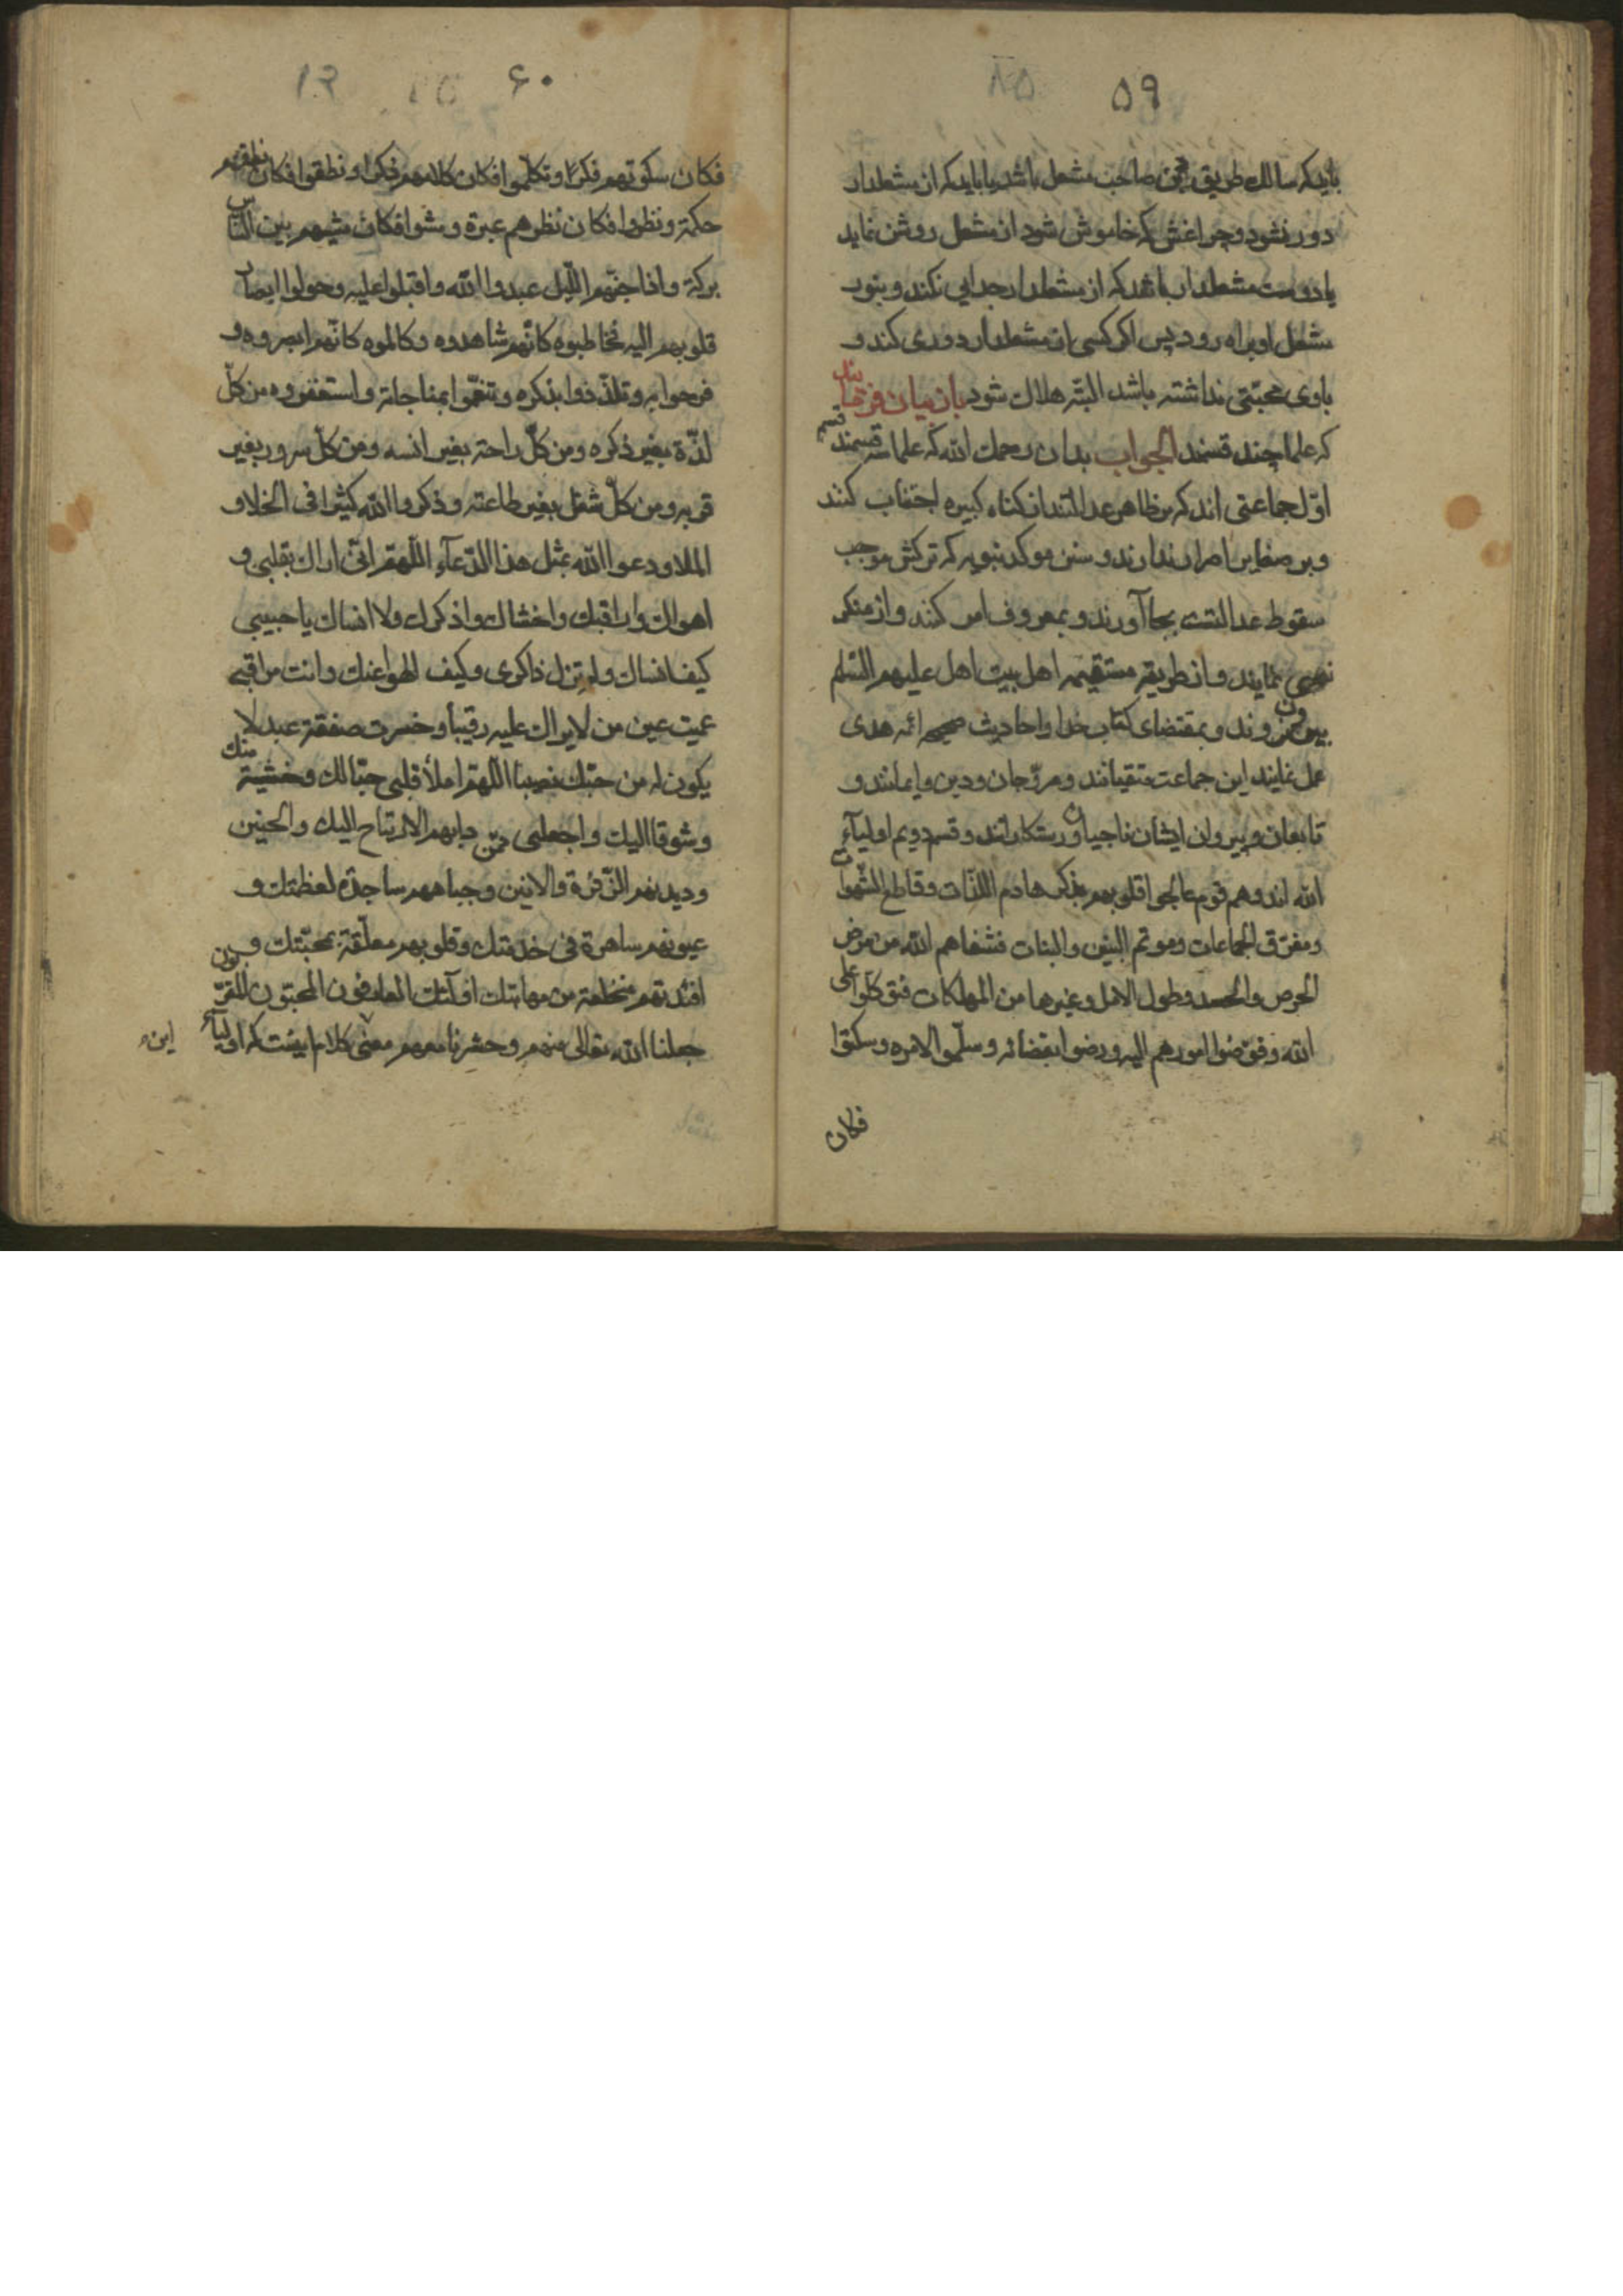 ۵۹
باید که سالک طریق حق صاحب مشعل باشد یا باید که از مشعلدار
دور نشود و چراغش که خاموش شود از مشعل روشن نماید
یا دوست مشعلدار باشد که از مشعلدار جدایی نکند و بنور
مشعل او براه رود پس اکر کسی از مشعلدار دوری کند و
باوی محبّتی نداشته باشد البتّه هلاک شود باز بیان فرمایند
که علما چند قسمند الجواب بدان رحمک الله که علما سه قسمند قسم
اوّل جماعتی اند که بر ظاهر عدالتند از کناه کبیره اجتناب کنند
و بر صغایر اصرار ندارند و سنن موکد نبویه که ترکش موجب
سقوط عدالتست بجا آورند و بمعروف امر کنند و از منکر
نهی نمایند و از طریقه مستقیمه اهل بیت اهل علیهم السّلم
بیرون نروند و بمقتضای کتاب خدا و احادیث صحیحه ائمه هدی
عمل نمایند این جماعت متقیانند و مروّجان ودین وایمانند و
تابعان و پیروان ایشان ناجیان و رستکارانند و قسم دویم اولیآء
الله اند و هم قوم عالجوا قلوبهم بذکر هادم اللذّات و قاطع الشّهوات
ومفرّق الجماعات وموتم البنین والبنات فشفاهم الله من مرض
الحرص والحسد وطول الامل وغیرها من المهلکات فتوکلّوا علی
الله وفوّضوا امورهم الیه ورضوا بقضائه وسلّموا لامره وسکتوا
فکان
۶۰
فکان سکوتهم فکرًا وتکلّموا فکان کلامهم ذکرا ونطقوا فکان نطقهم
حکمة ونظروا فکان نظرهم عبرة ومشوا فکان مشیهم بین النّاس
برکة واذا جنّهم اللّیل عبدوا الله واقبلوا علیه وحولوا ابصار
قلوبهم الیه فخاطبوه کانّهم شاهدوه وکالموه کانّهم ابصروه و
فرحوا به وتلذّذوا بذکره وتنعّموا بمناجاته واستغفروه من کلّ
لذّة بغیر ذکره ومن کلّ راحة بغیر انسه ومن کلّ سرور بغیر
قربه ومن کلّ شغل بغیر طاعته وذکروا الله کثیرا فی الخلاو
الملا ودعوا الله بمثل هذا الدّعآء اللّهمّ انّی اراک بقلبی و
اهواک واراقبک واخشاک واذکرک ولا انساک یا حبیبی
کیف انساک ولم تزل ذاکری وکیف الهو اعنک وانت مراقبی
عمیت عین من لا یراک علیه رقیبا وخسرت صفقة عبد لا
یکون له من حبّک نصیبا اللّهمّ املأ قلبی حبّا لک وخشیة منک
وشوقا الیک واجعلنی ممّن دابهم الارتیاح الیک والحنین
ودیدنهم الزّفرة والانین وجباههم ساجدة لعظمتک و
عیونهم ساهرة فی خدمتک وقلوبهم معلّقة بمحبّتک و
افئدتهم منخلعة من مهابتک اولآئک العارفون المحبّون المقرّبون
جعلنا الله تعالی منهم وحشرنا معهم معنی کلام اینست که اولیآء
این